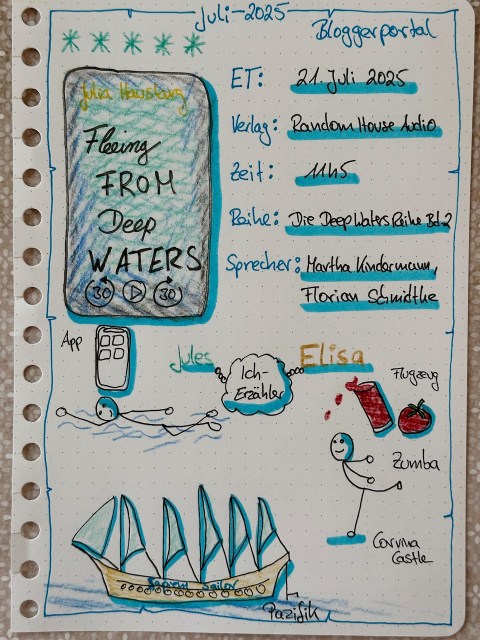 Juli-2025
Bloggerportal
Julia Hausburg
Fleeing
FROM
Deep
WATERS
30
30
ET: 21. Juli 2025
Verlag: Random House Audio
Zeit: 11h5
Reihe: Die Deep Waters Reihe Bd. 2
Sprecher: Martha Kindermann,
Florian Schmidtke
App
Jules
Ich-
Erzähler
Elisa
Flugzeug
Zumba
Corvina
Castle
Sailor
Pazifik